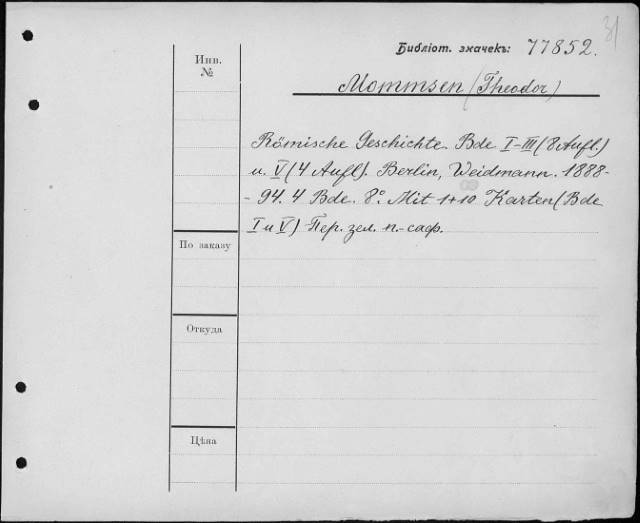 31
Библіот. значекъ: 77852.
Инв.
№
Mommsen (Theodor)
Römische Geschichte. Bde I-III (8 Aufl.)
u. V (4 Aufl). Berlin, Weidmann. 1888-
- 94. 4 Bde. 8º. Mit 1+10 Karten (Bde
I u V) Пер. зел. п.-саф.
По заказу
Откуда
Цѣна